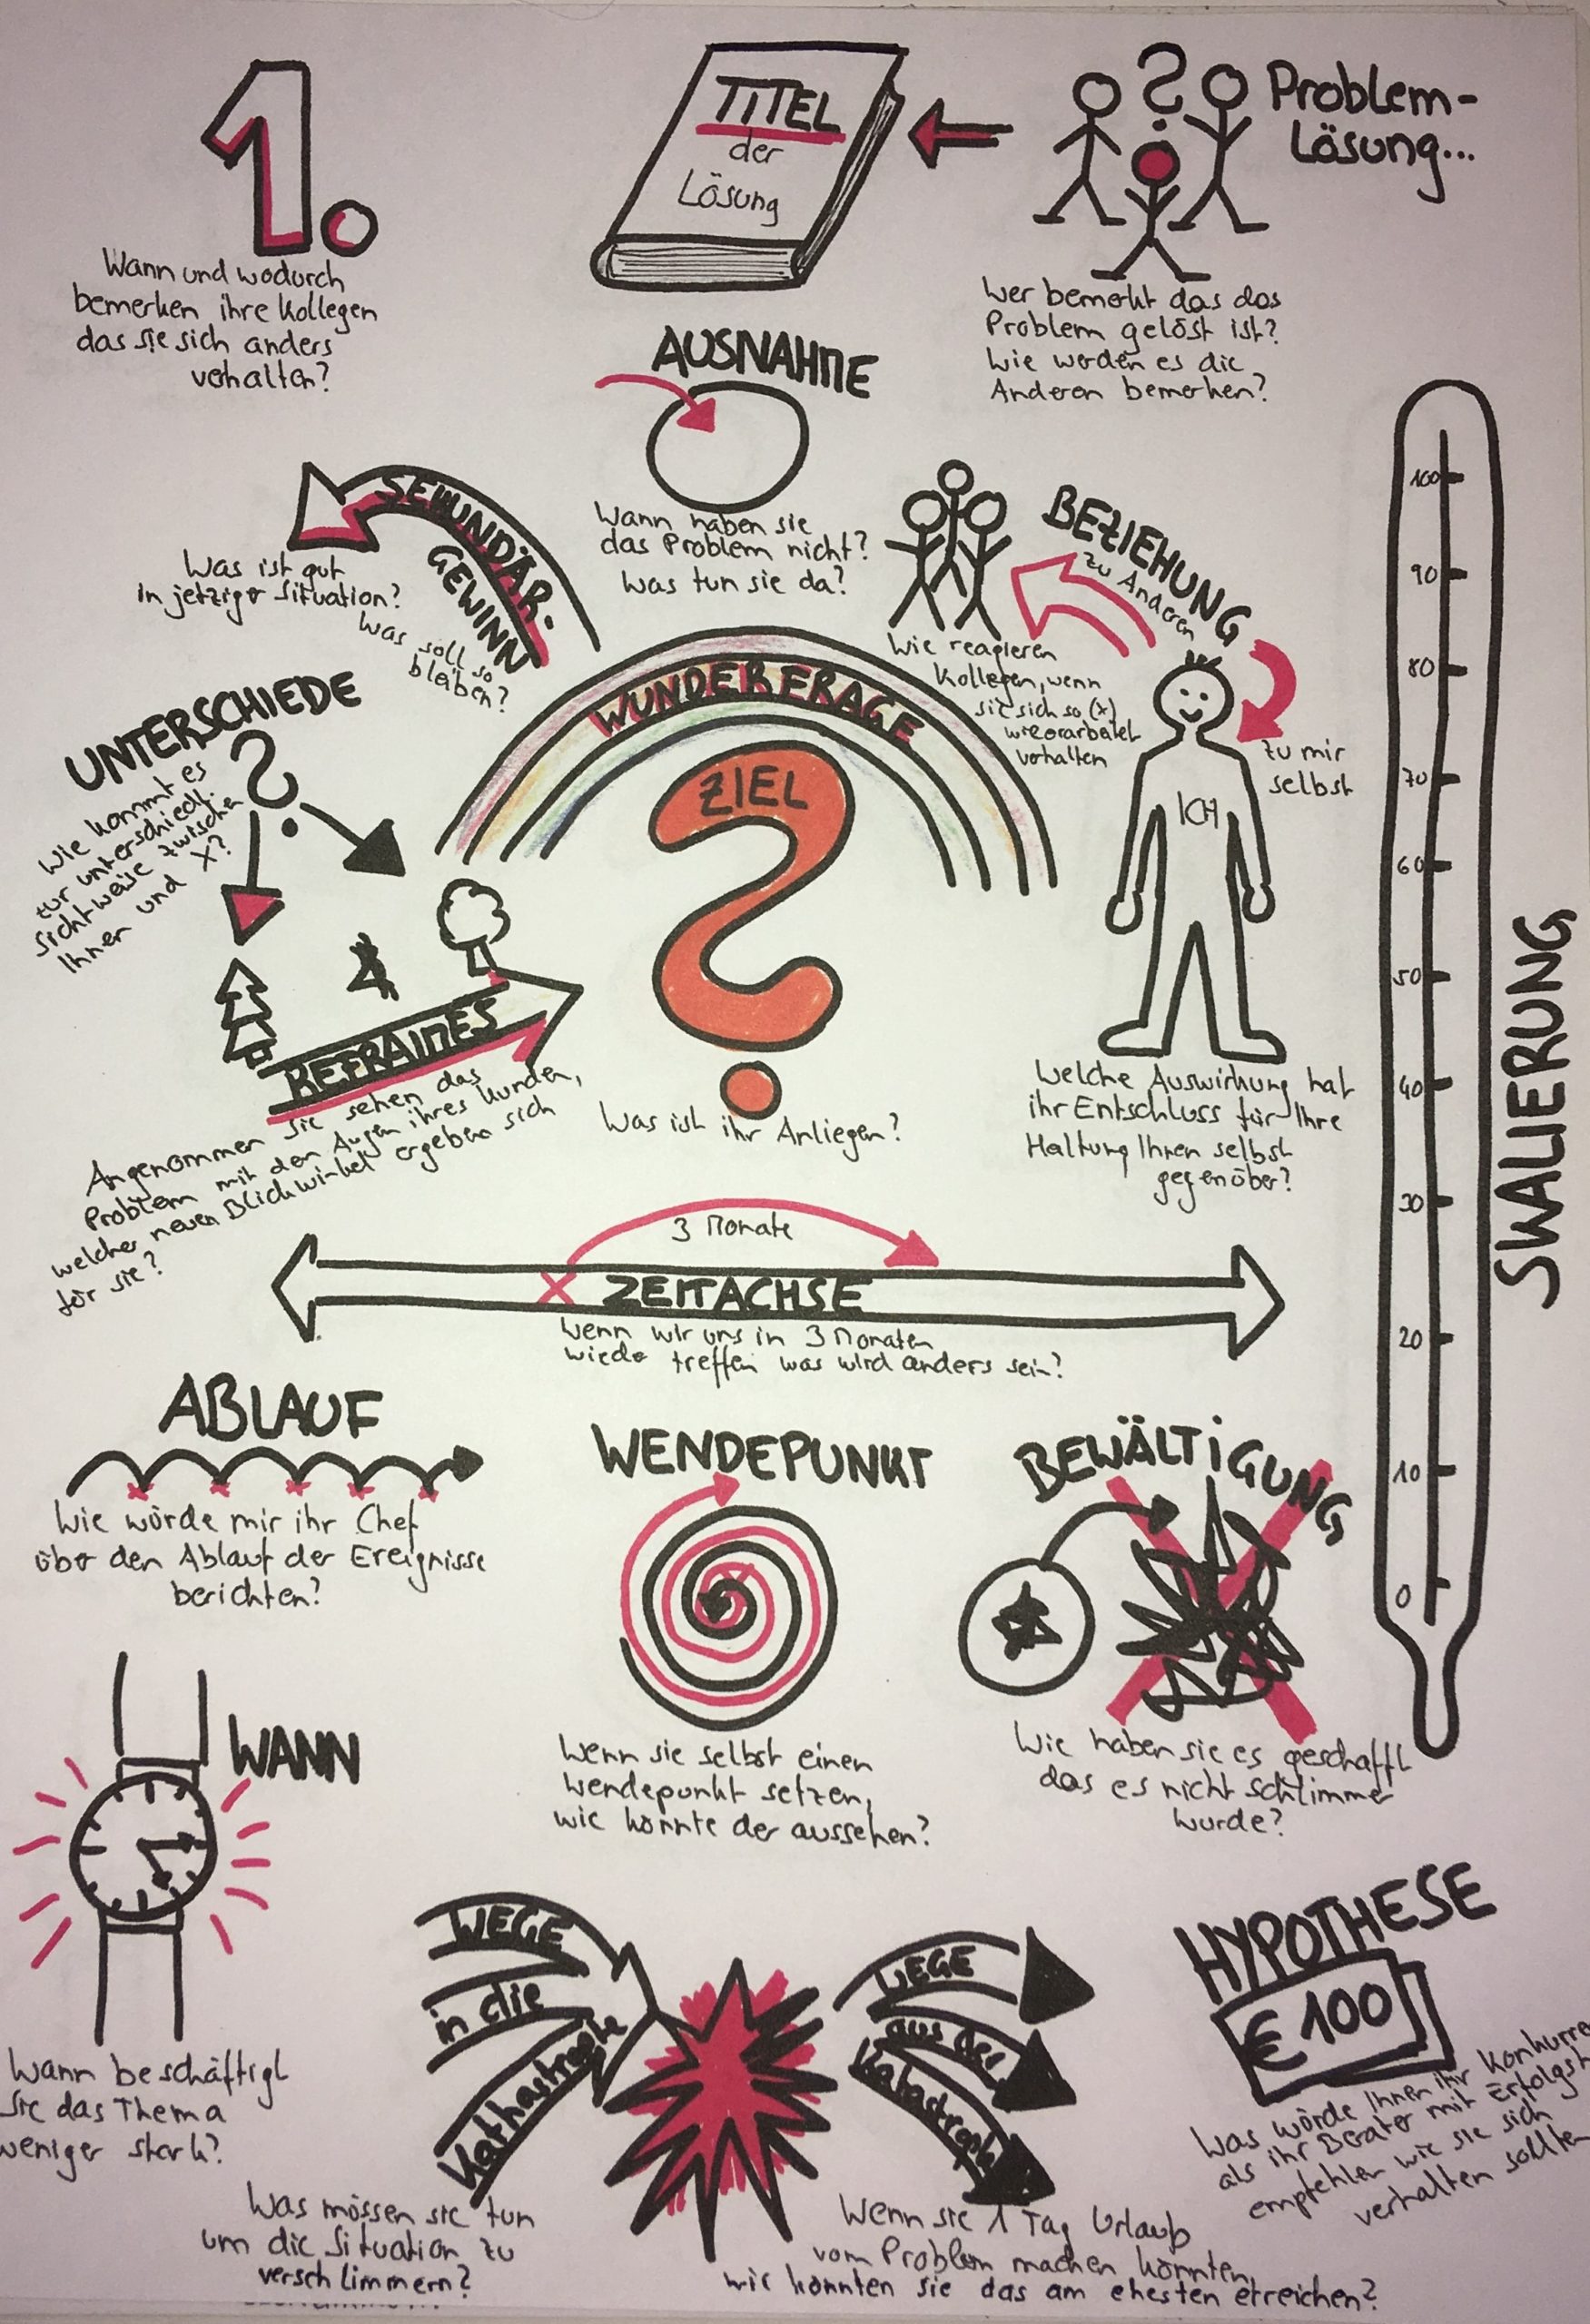 1.
Wann und wodurch
bemerken ihre Kollegen
das sie sich anders
verhalten?
TITEL
der
Lösung
?
Problem-
Lösung...
Wer bemerkt das das
Problem gelöst ist?
Wie werden es die
Anderen bemerken?
AUSNAHME
Wann haben sie
das Problem nicht?
was tun sie da?
SEKUNDÄR-
GEWINN
Was ist gut
in jetziger Situation?
was soll so
bleiben?
BEZIEHUNG
zu Anderen
Wie reagieren
Kollegen, wenn
sie sich so (x)
verhalten
zu mir
selbst
ICH
Welche Auswirkung hat
ihr Entschluss für Ihre
Haltung Ihnen selbst
gegenüber?
UNTERSCHIEDE
?
Wie kommt es
zur unterschiedl.
Sichtweise zwischen
Ihnen und X?
WUNDERFRAGE
ZIEL
?
Was ist ihr Anliegen?
REFRAIMES
Angenommen sie sehen das
Problem mit den Augen ihres Kunden,
welcher neuen Blickwinkel ergeben sich
für sie?
3 Monate
X ZEITACHSE
Wenn wir uns in 3 Monaten
wieder treffen was wird anders sein?
SKALIERUNG
100
90
80
70
60
50
40
30
20
10
0
ABLAUF
Wie würde mir ihr Chef
über den Ablauf der Ereignisse
berichten?
WENDEPUNKT
Wenn sie selbst einen
Wendepunkt setzen,
wie könnte der aussehen?
BEWÄLTIGUNG
Wie haben sie es geschafft
das es nicht schlimmer
wurde?
WANN
Wann beschäftigt
Sie das Thema
weniger stark?
WEGE
in die
Kathastrophe
Was müssen sie tun
um die Situation zu
verschlimmern?
WEGE
aus der
Katastrophe
Wenn sie 1 Tag Urlaub
vom Problem machen könnten,
wie könnten sie das am ehesten erreichen?
HYPOTHESE
€ 100
Was würde Ihnen ihr
als ihr Berater mit
empfehlen wie sie sich
verhalten sollten